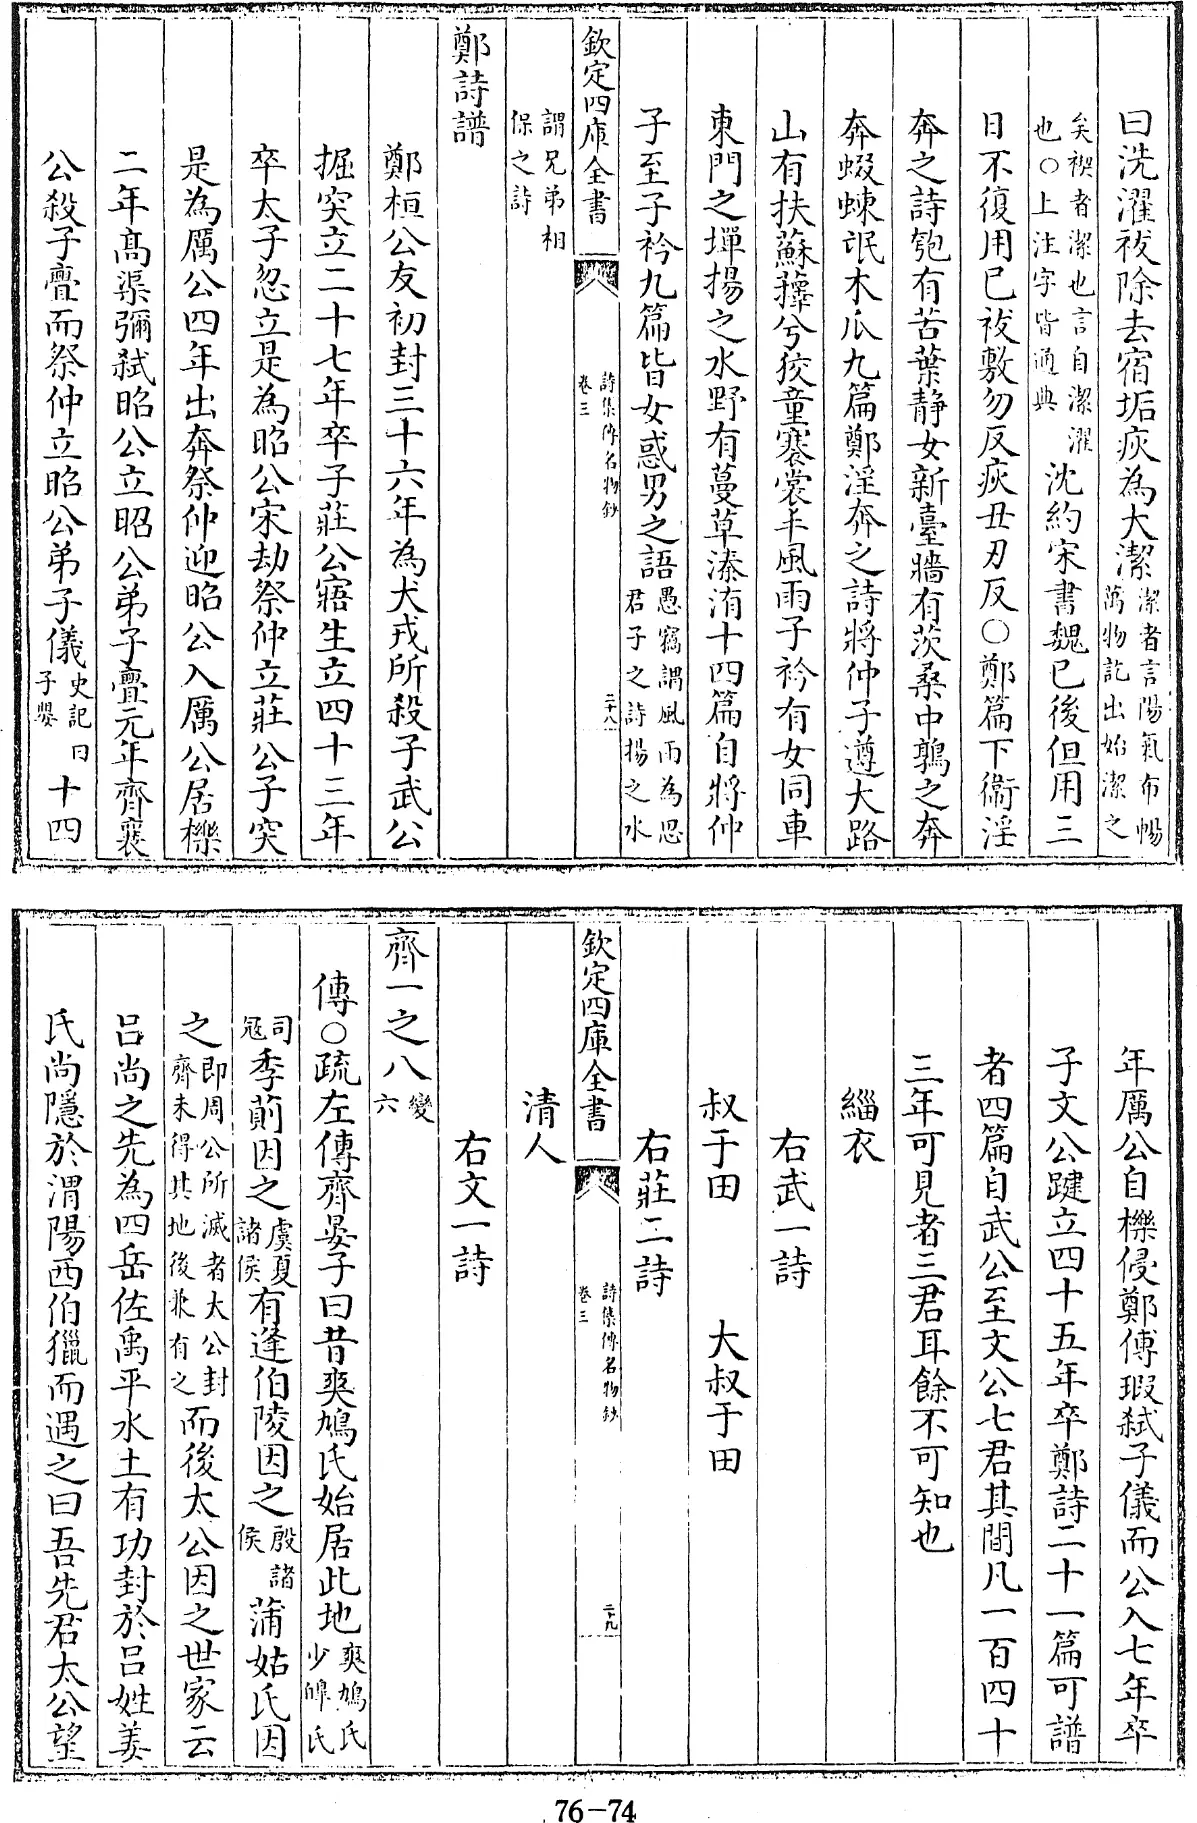 曰洗濯祓除去宿垢疢為大潔潔者言陽氣布暢萬物訖出始潔之
矣禊者潔也言自潔濯也○上注字皆通典沈約宋書魏已後但用三
日不復用巳祓敷勿反疢丑刃反○鄭篇下衞淫
奔之詩匏有苦葉静女新臺牆有茨桑中鶉之奔
奔蝃蝀氓木瓜九篇鄭淫奔之詩將仲子遵大路
山有扶蘇蘀兮狡童褰裳丰風雨子衿有女同車
東門之墠揚之水野有蔓草溱洧十四篇自將仲
子至子衿九篇皆女惑男之語愚竊謂風雨為思君子之詩揚之水
欽定四庫全書
詩集傳名物鈔
卷三
二十八
謂兄弟相保之詩
鄭詩譜
鄭桓公友初封三十六年為犬戎所殺子武公
掘突立二十七年卒子莊公寤生立四十三年
卒太子忽立是為昭公宋劫祭仲立莊公子突
是為厲公四年出奔祭仲迎昭公入厲公居櫟
二年高渠彌弑昭公立昭公弟子亹元年齊襄
公殺子亹而祭仲立昭公弟子儀史記曰子嬰十四
年厲公自櫟侵鄭傅瑕弑子儀而公入七年卒
子文公踕立四十五年卒鄭詩二十一篇可譜
者四篇自武公至文公七君其間凡一百四十
三年可見者三君耳餘不可知也
緇衣
右武一詩
叔于田　大叔于田
右莊二詩
欽定四庫全書
詩集傳名物鈔
卷三
二十九
清人
右文一詩
齊一之八變六
傳○疏左傳齊晏子曰昔爽鳩氏始居此地爽鳩氏少皥氏
司冦季萴因之虞夏諸侯有逢伯陵因之殷諸侯蒲姑氏因
之即周公所滅者大公封齊未得其地後兼有之而後太公因之世家云
吕尚之先為四岳佐禹平水土有功封於吕姓姜
氏尚隱於渭陽西伯獵而遇之曰吾先君太公望
76-74